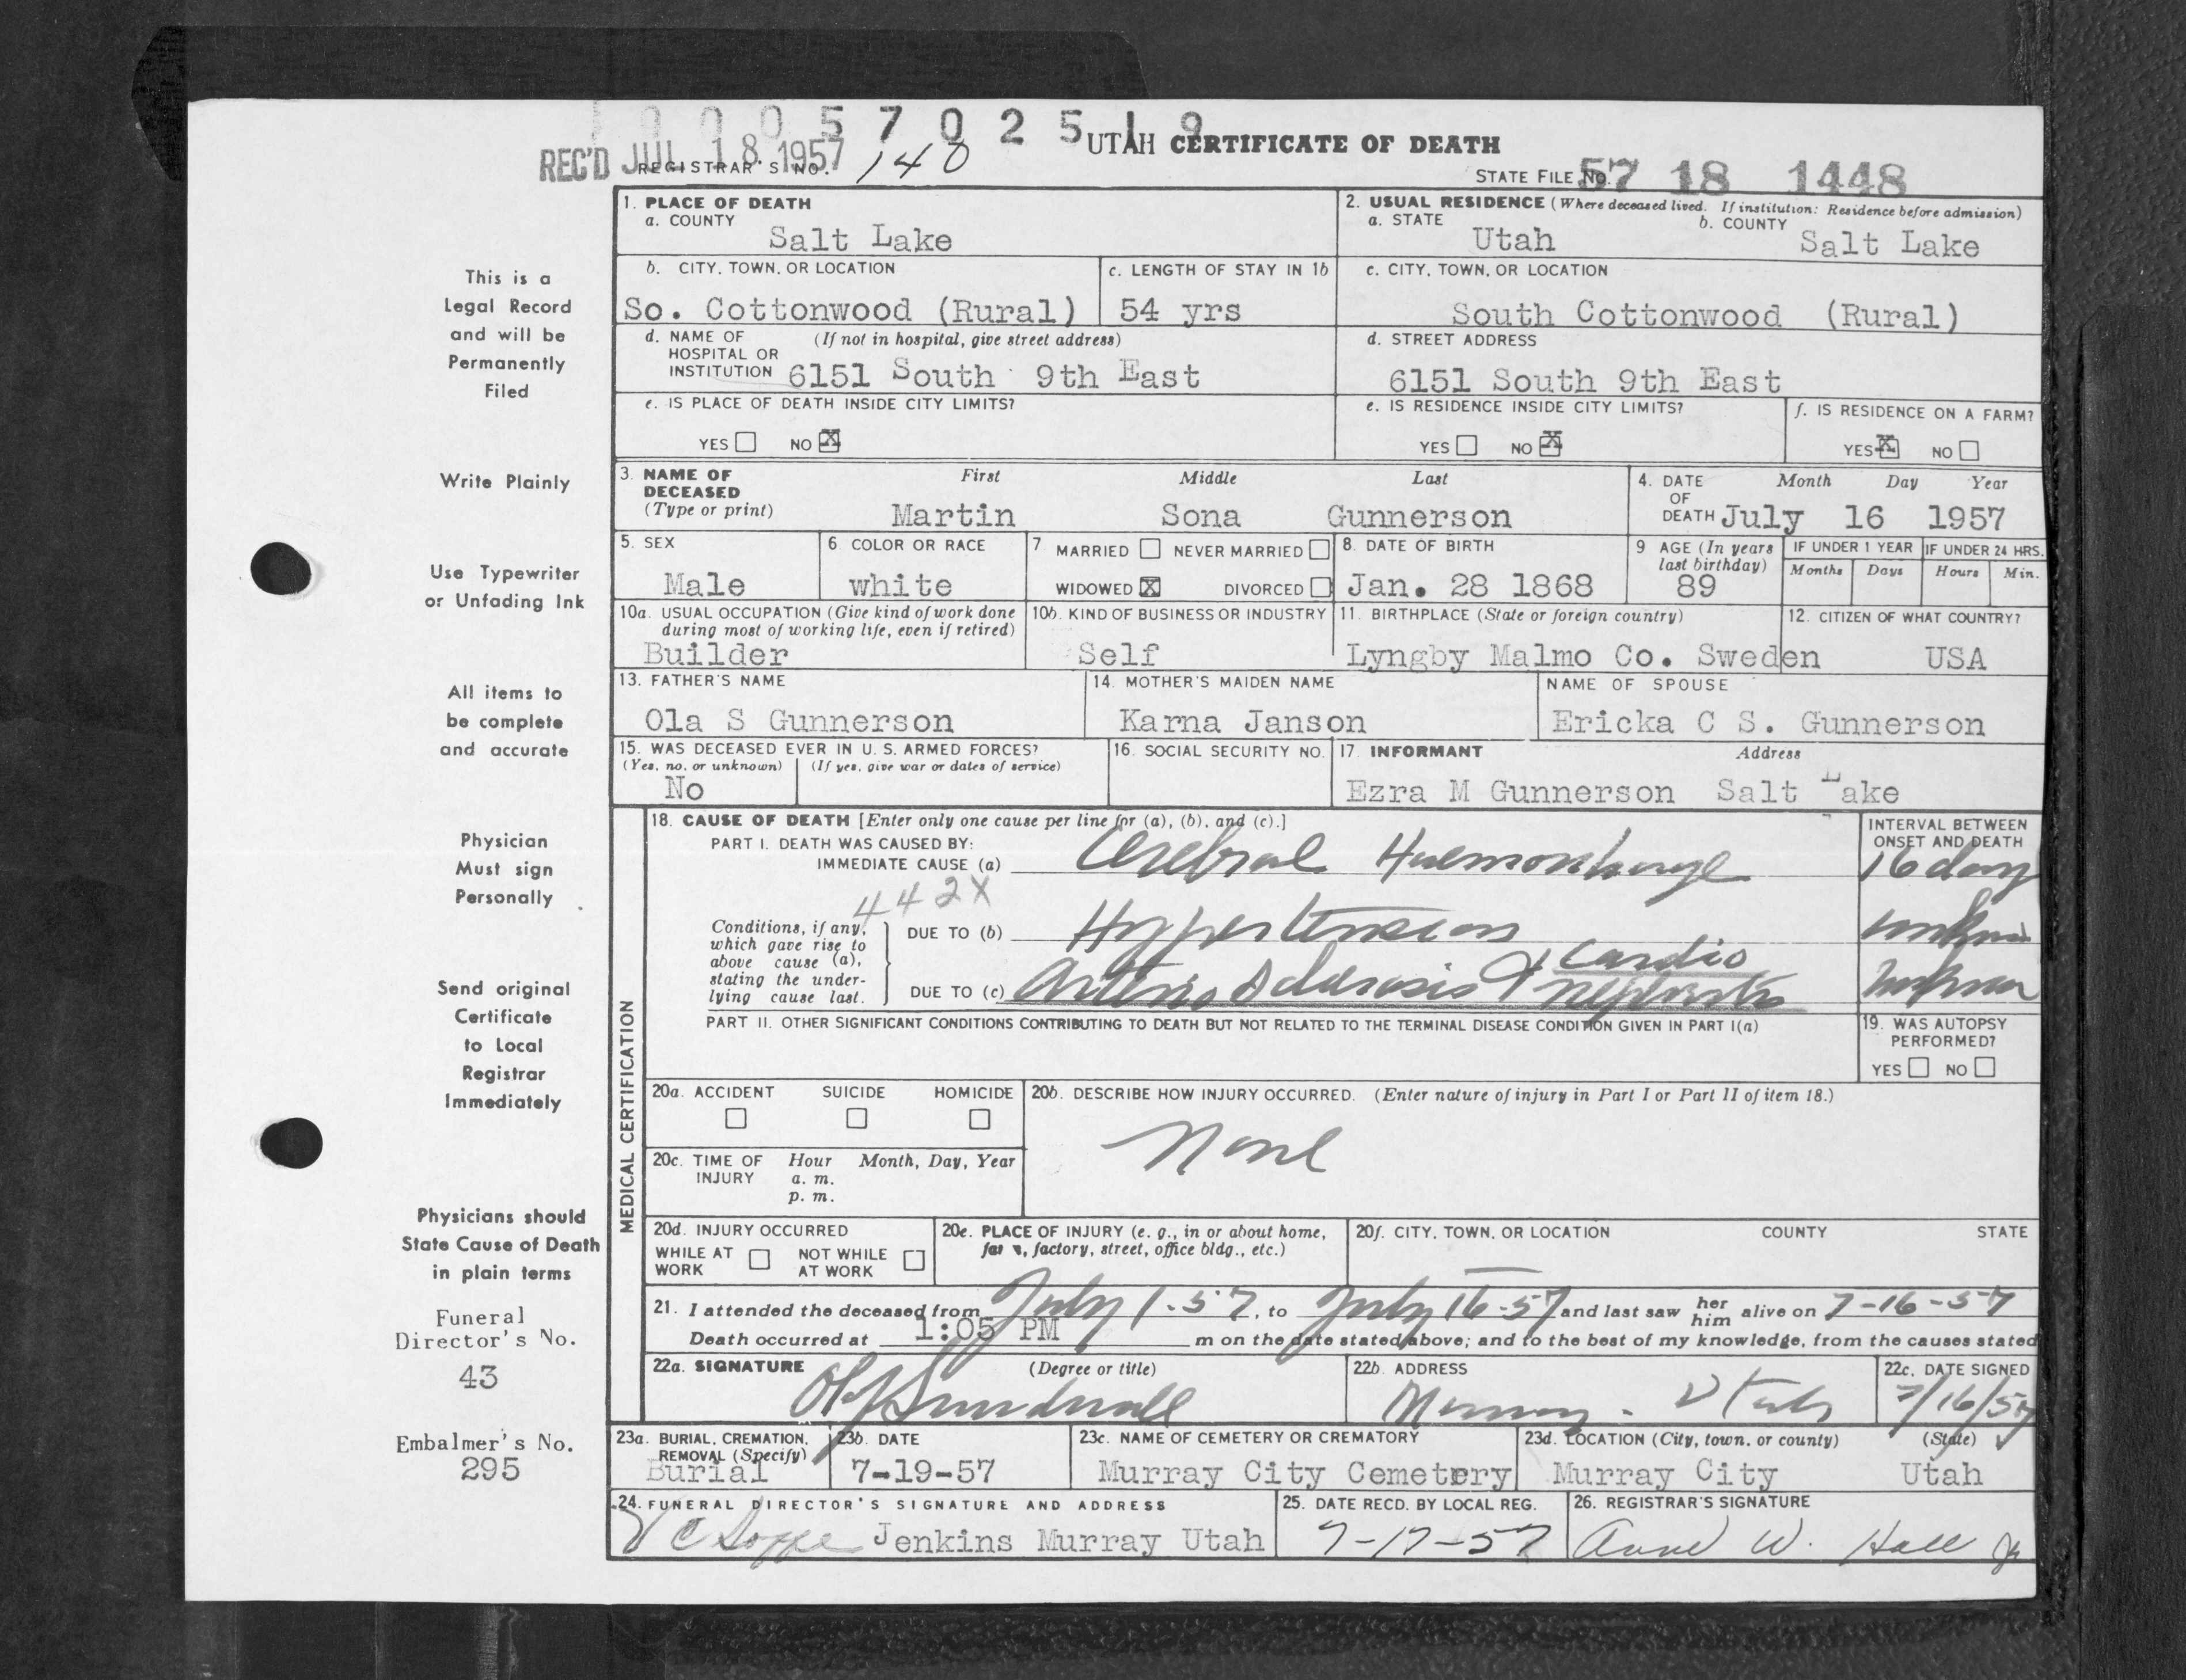 1 0 0 0 5 7 0 2 5 1 9
UTAH CERTIFICATE OF DEATH
REC'D JUL 18 1957
REGISTRAR'S NO. 140
STATE FILE NO. 57 18 1448
1. PLACE OF DEATH
a. COUNTY
Salt Lake
2. USUAL RESIDENCE (Where deceased lived. If institution: Residence before admission)
a. STATE b. COUNTY
Utah Salt Lake
b. CITY, TOWN, OR LOCATION c. LENGTH OF STAY IN 1b
So. Cottonwood (Rural) 54 yrs
c. CITY, TOWN, OR LOCATION
South Cottonwood (Rural)
d. NAME OF (If not in hospital, give street address)
HOSPITAL OR
INSTITUTION 6151 South 9th East
d. STREET ADDRESS
6151 South 9th East
e. IS PLACE OF DEATH INSIDE CITY LIMITS?
YES NO X
e. IS RESIDENCE INSIDE CITY LIMITS?
YES NO X
f. IS RESIDENCE ON A FARM?
YES X NO
3. NAME OF First Middle Last
DECEASED
(Type or print) Martin Sona Gunnerson
4. DATE Month Day Year
OF
DEATH July 16 1957
5. SEX
Male
6 COLOR OR RACE
white
7 MARRIED NEVER MARRIED
WIDOWED X DIVORCED
8. DATE OF BIRTH
Jan. 28 1868
9 AGE (In years
last birthday)
89
IF UNDER 1 YEAR IF UNDER 24 HRS.
Months Days Hours Min.
10a. USUAL OCCUPATION (Give kind of work done
during most of working life, even if retired)
Builder
10b. KIND OF BUSINESS OR INDUSTRY
Self
11. BIRTHPLACE (State or foreign country)
Lyngby Malmo Co. Sweden
12. CITIZEN OF WHAT COUNTRY?
USA
13. FATHER'S NAME
Ola S Gunnerson
14. MOTHER'S MAIDEN NAME
Karna Janson
NAME OF SPOUSE
Ericka C S. Gunnerson
15. WAS DECEASED EVER IN U. S. ARMED FORCES?
(Yes, no, or unknown) (If yes, give war or dates of service)
No
16. SOCIAL SECURITY NO.
17. INFORMANT Address
Ezra M Gunnerson Salt Lake
MEDICAL CERTIFICATION
18. CAUSE OF DEATH [Enter only one cause per line for (a), (b), and (c).]
PART I. DEATH WAS CAUSED BY:
IMMEDIATE CAUSE (a) Cerebral Haemorrhage
INTERVAL BETWEEN
ONSET AND DEATH
16 days
442X
Conditions, if any,
which gave rise to
above cause (a),
stating the under-
lying cause last.
DUE TO (b) Hypertension
DUE TO (c) Arterio Sclerosis & Cardio
PART II. OTHER SIGNIFICANT CONDITIONS CONTRIBUTING TO DEATH BUT NOT RELATED TO THE TERMINAL DISEASE CONDITION GIVEN IN PART I(a)
19. WAS AUTOPSY
PERFORMED?
YES NO
20a. ACCIDENT SUICIDE HOMICIDE
20b. DESCRIBE HOW INJURY OCCURRED. (Enter nature of injury in Part I or Part II of item 18.)
None
20c. TIME OF Hour Month, Day, Year
INJURY a. m.
p. m.
20d. INJURY OCCURRED
WHILE AT NOT WHILE
WORK AT WORK
20e. PLACE OF INJURY (e. g., in or about home,
farm, factory, street, office bldg., etc.)
20f. CITY, TOWN, OR LOCATION COUNTY STATE
21. I attended the deceased from July 1-57, to July 16-57 and last saw her him alive on 7-16-57
Death occurred at 1:05 PM m on the date stated above; and to the best of my knowledge, from the causes stated
22a. SIGNATURE (Degree or title)
Sundwall
22b. ADDRESS
Murray - Utah
22c. DATE SIGNED
7/16/57
23a. BURIAL, CREMATION,
REMOVAL (Specify)
Burial
23b. DATE
7-19-57
23c. NAME OF CEMETERY OR CREMATORY
Murray City Cemetery
23d. LOCATION (City, town, or county) (State)
Murray City Utah
24. FUNERAL DIRECTOR'S SIGNATURE AND ADDRESS
Jenkins Murray Utah
25. DATE RECD. BY LOCAL REG.
7-17-57
26. REGISTRAR'S SIGNATURE
W. Hall
This is a
Legal Record
and will be
Permanently
Filed
Write Plainly
Use Typewriter
or Unfading Ink
All items to
be complete
and accurate
Physician
Must sign
Personally
Send original
Certificate
to Local
Registrar
Immediately
Physicians should
State Cause of Death
in plain terms
Funeral
Director's No.
43
Embalmer's No.
295